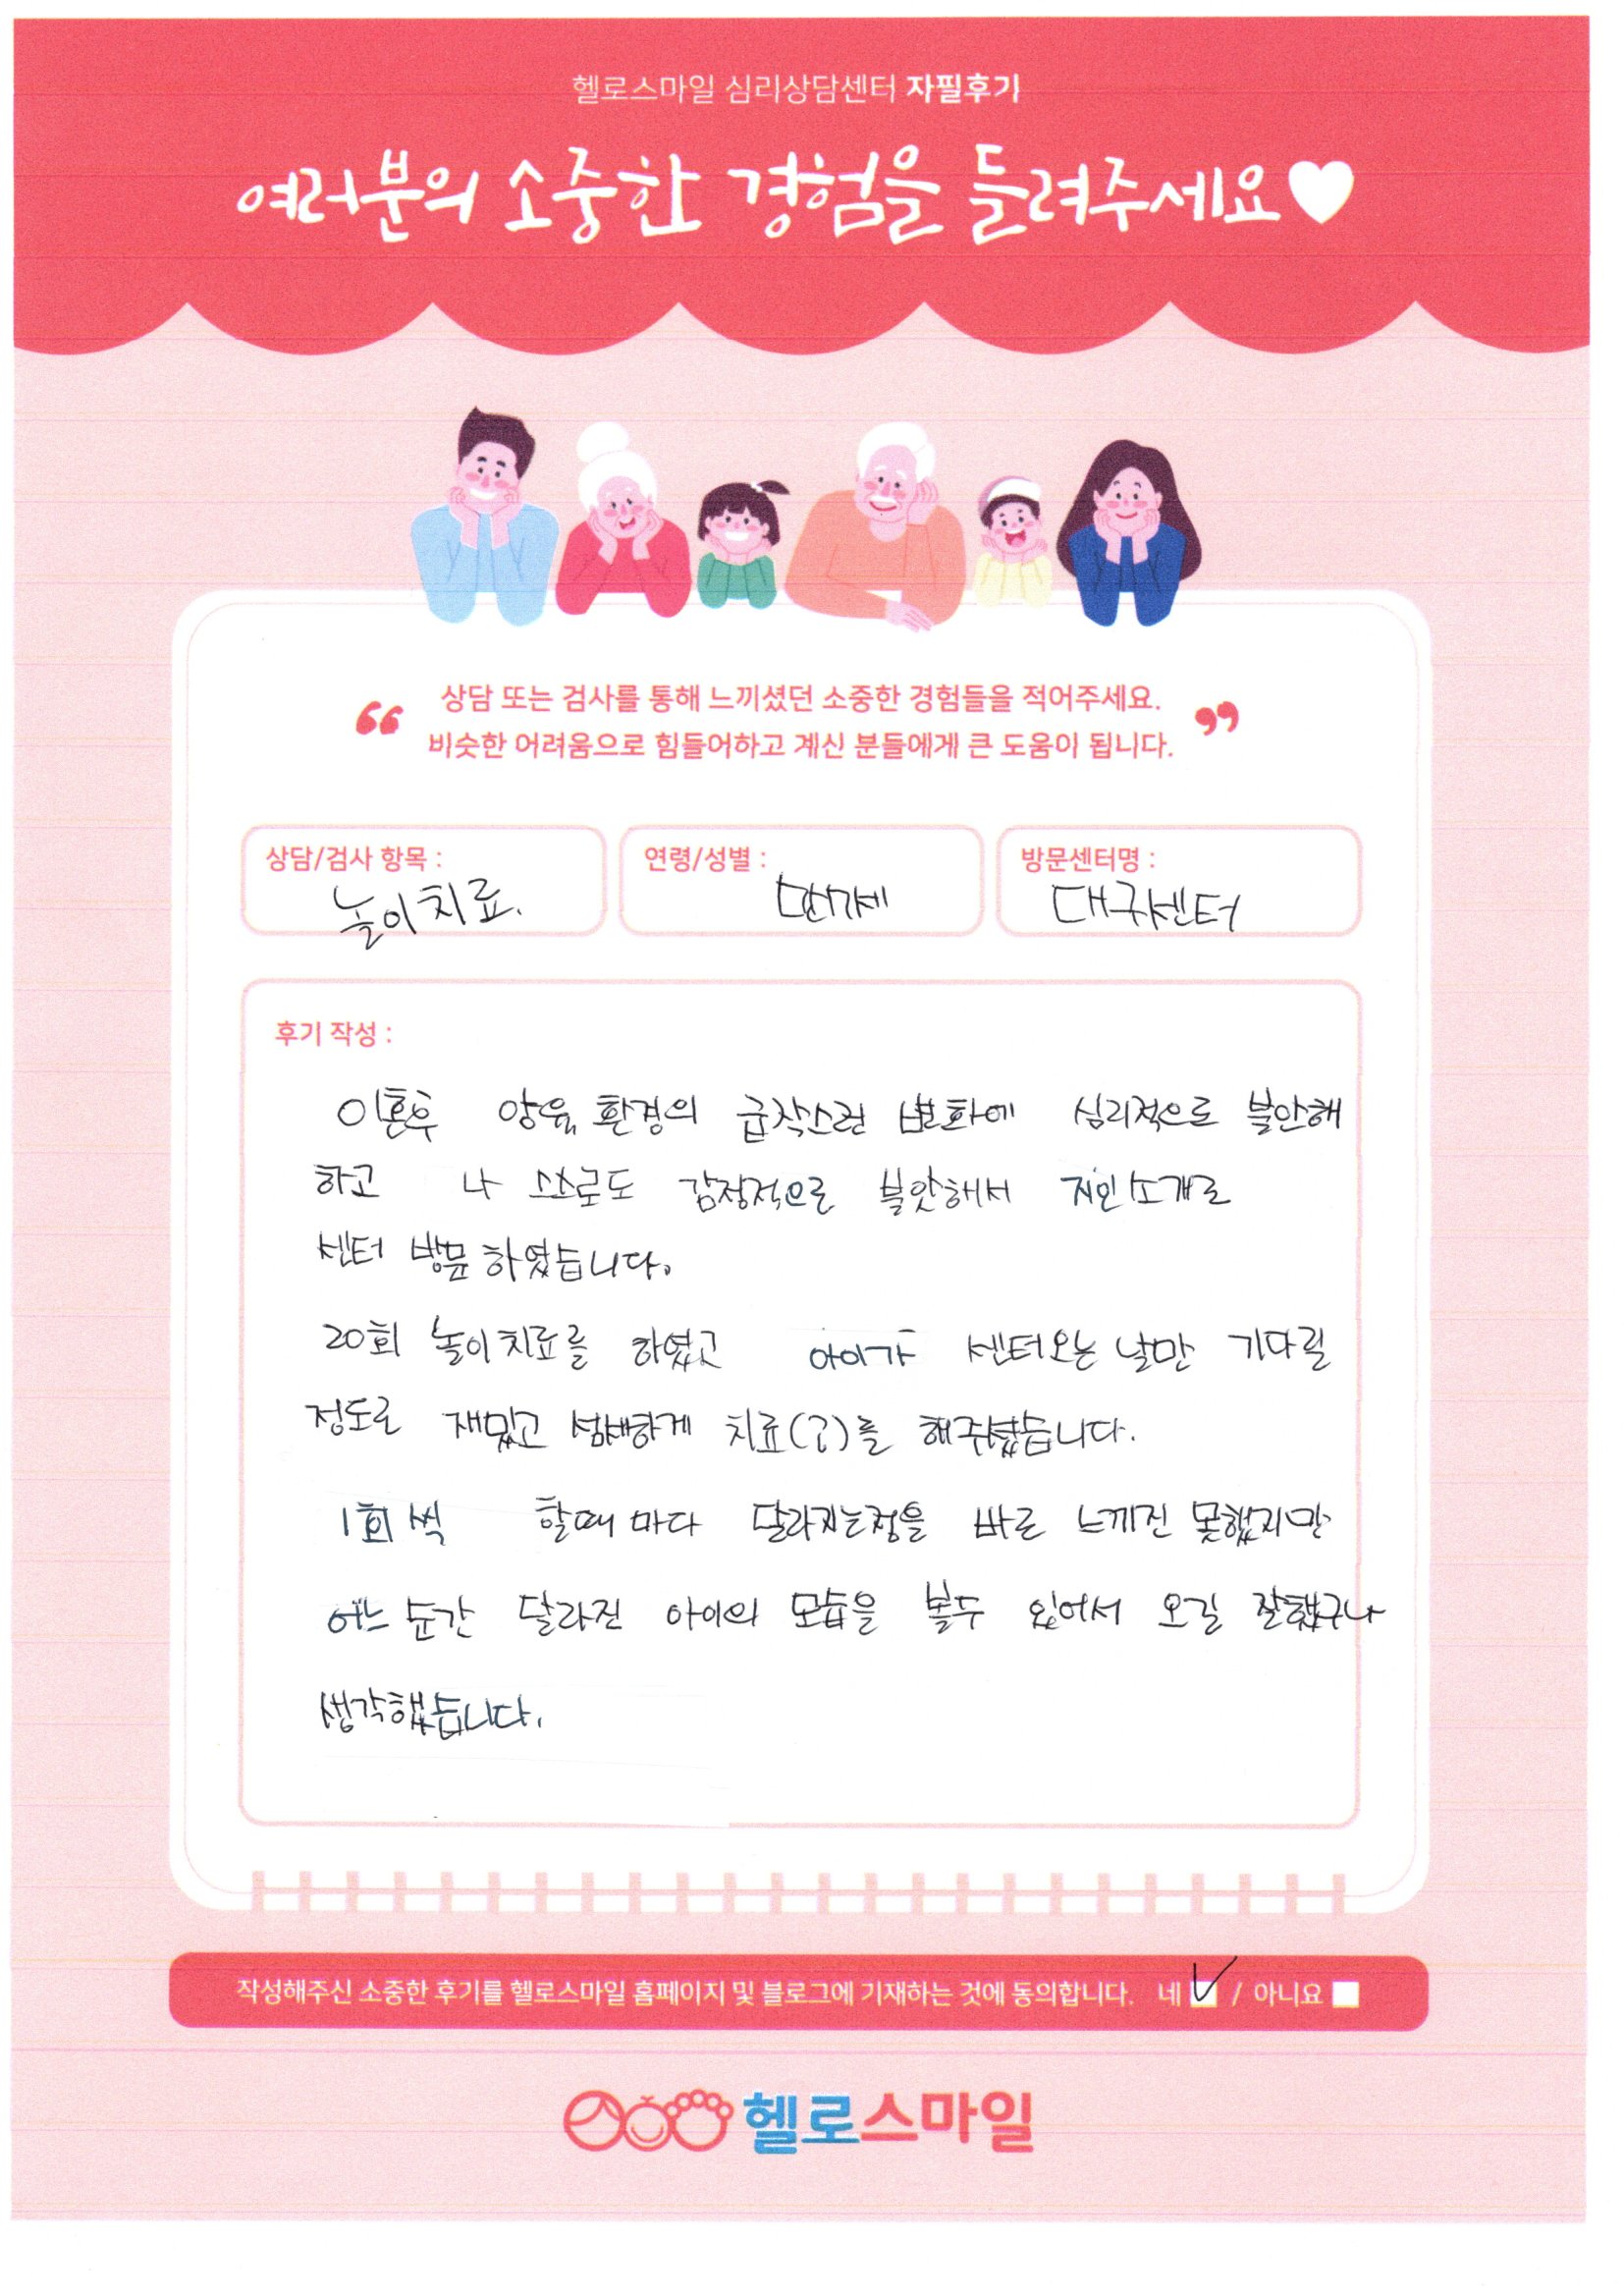 헬로스마일 심리상담센터 자필후기
여러분의 소중한 경험을 들려주세요
상담 또는 검사를 통해 느끼셨던 소중한 경험들을 적어주세요.
비슷한 어려움으로 힘들어하고 계신 분들에게 큰 도움이 됩니다.
상담/검사 항목 :
놀이치료.
연령/성별 :
만7세
방문센터명 :
대구센터
후기 작성 :
이혼후 양육 환경의 급작스런 변화에 심리적으로 불안해
하고 나 스스로도 감정적으로 불안해서 지인소개로
센터 방문 하였습니다.
20회 놀이치료를 하였고 아이가 센터오는 날만 기다릴
정도로 재밌고 섬세하게 치료(?)를 해주셨습니다.
1회씩 할때 마다 달라지는점을 바로 느끼진 못했지만
어느 순간 달라진 아이의 모습을 볼수 있어서 오길 잘했구나
생각했습니다.
작성해주신 소중한 후기를 헬로스마일 홈페이지 및 블로그에 기재하는 것에 동의합니다. 네 / 아니요
헬로스마일